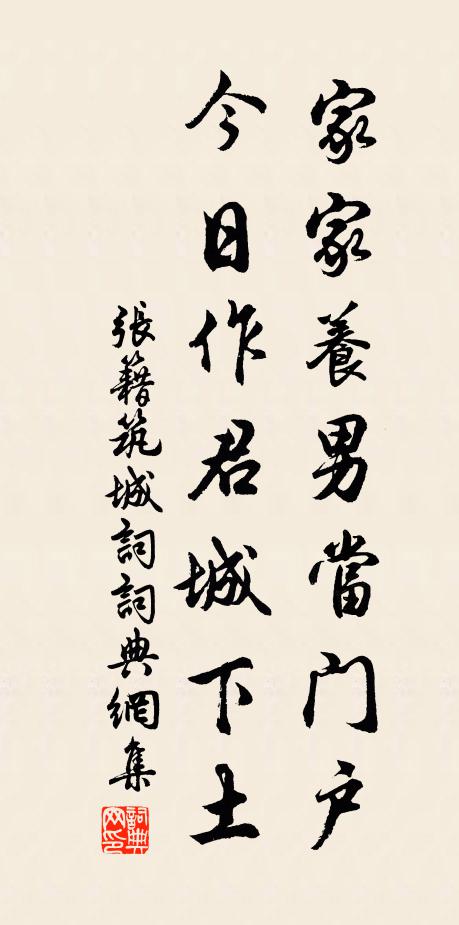 家家養男當门户
今日作君城下土
張籍筑城詞詞典網集
詞典网印